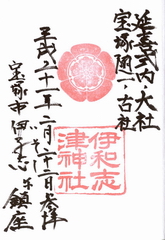 延喜式内・大社
宝塚随一ノ古社
伊和志
津神社
平成二十一年二月二十二日参拝
宝塚市伊孑志ニ鎮座